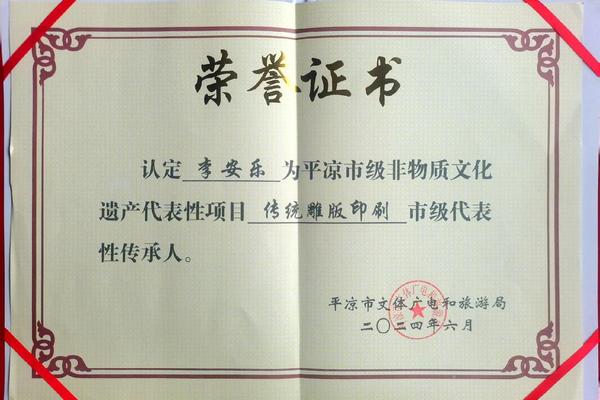 荣誉证书
认定 李安乐 为平凉市级非物质文化
遗产代表性项目 传统雕版印刷 市级代表
性传承人。
平凉市文体广电和旅游局
二〇二四年六月